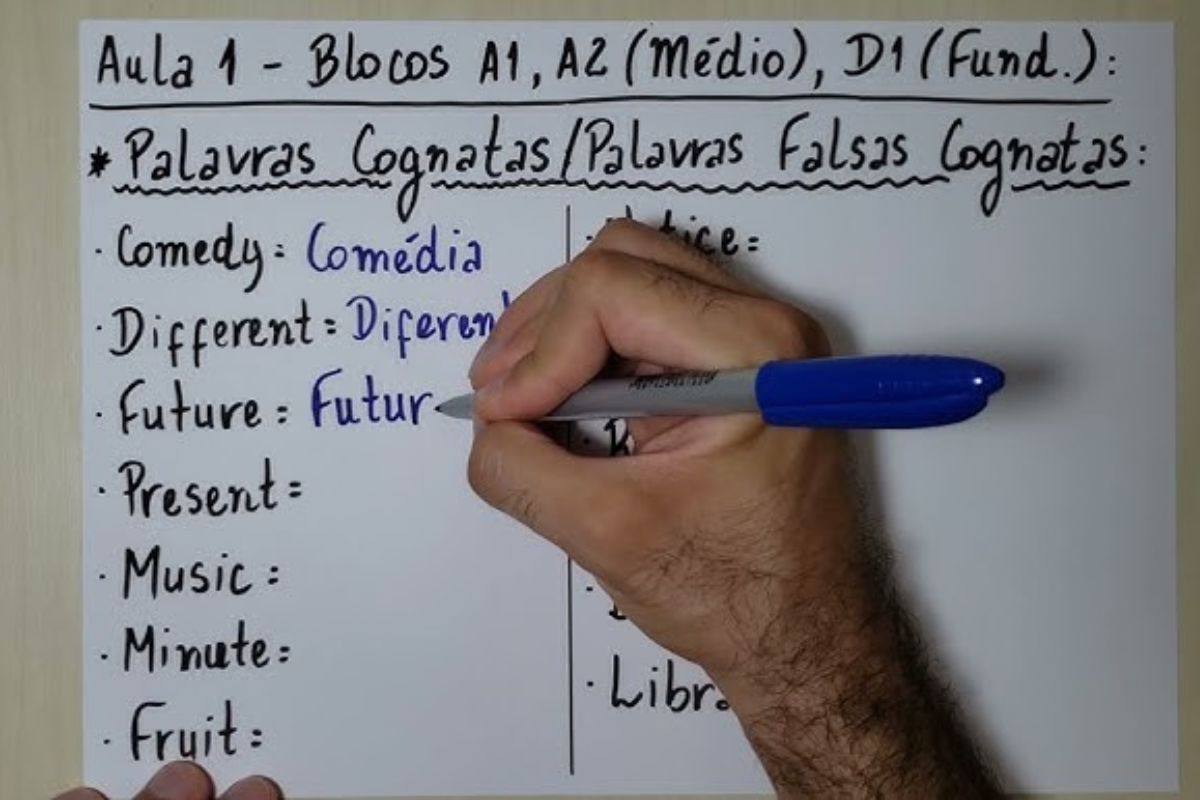 Aula 1 - Blocos A1, A2 (Médio), D1 (Fund.):
* Palavras Cognatas/Palavras Falsas Cognatas:
· Comedy: Comédia
· Different: Diferen
· Future: Futur
· Present:
· Music:
· Minute:
· Fruit: